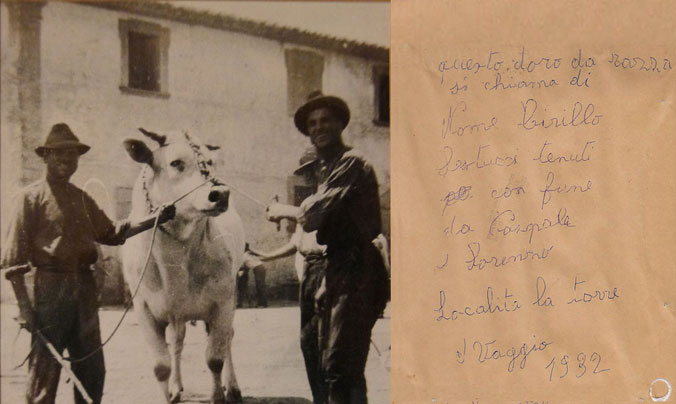 questo doro da razza
si chiama di
Nome Cirillo
Festucci tenuti
con fune
da Pasquale
e Lorenno
Localita la torre
e Vaggio
1932